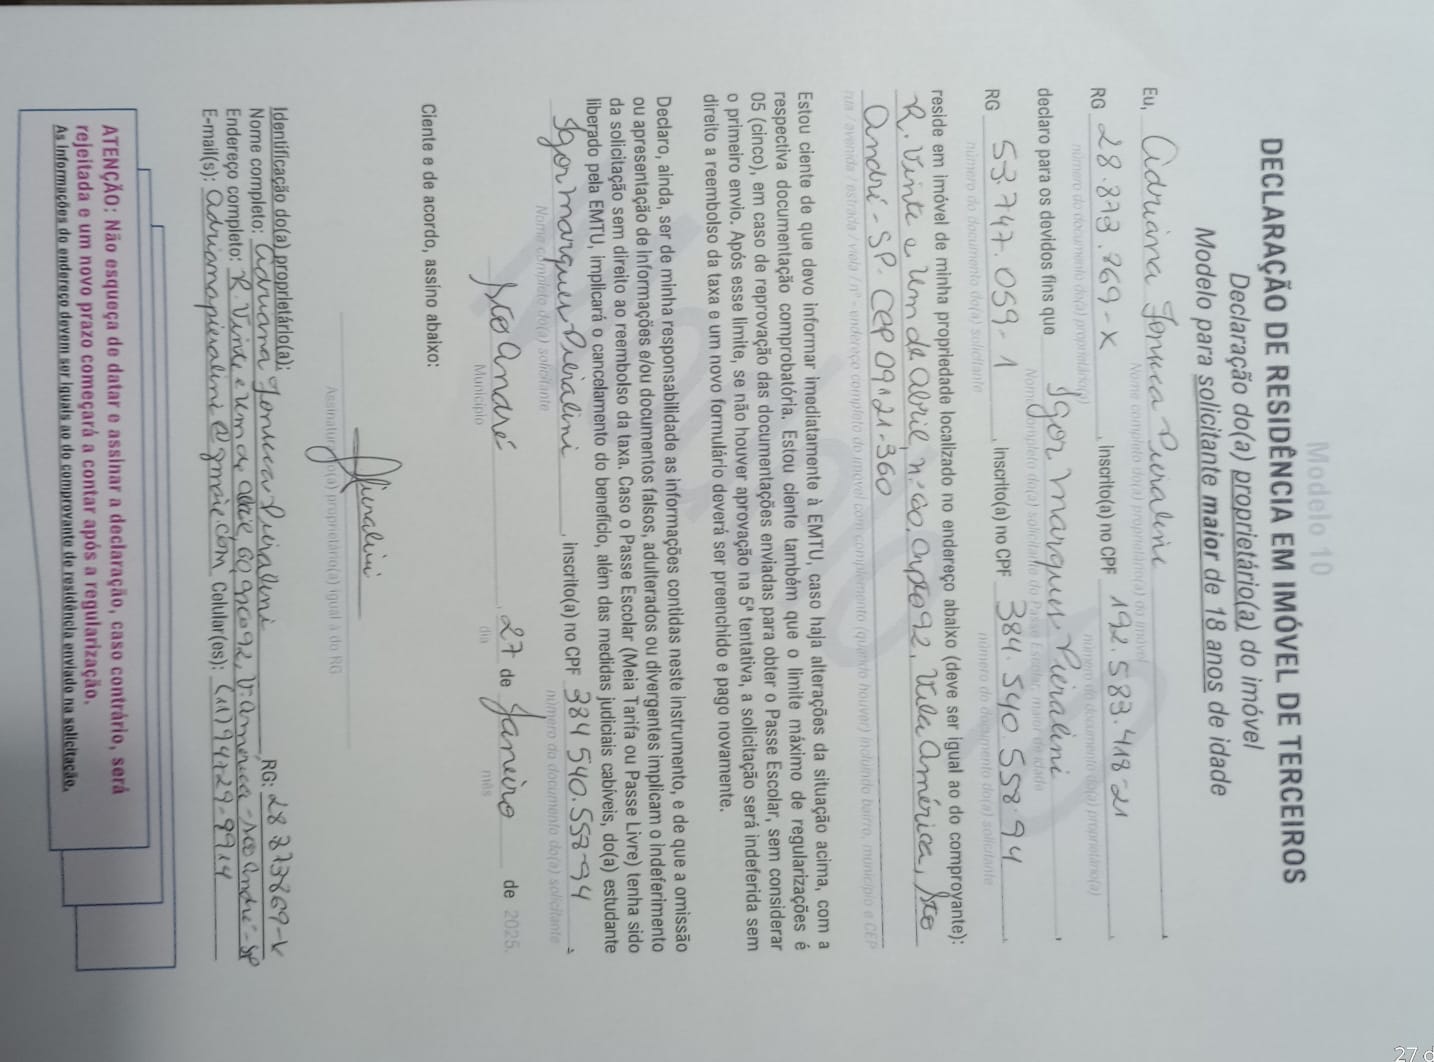 Modelo 10
DECLARAÇÃO DE RESIDÊNCIA EM IMÓVEL DE TERCEIROS
Declaração do(a) proprietário(a) do imóvel
Modelo para solicitante maior de 18 anos de idade
Eu, Adriana Fonseca Pieralini,
Nome completo do(a) proprietário(a) do imóvel
RG 28.873.869-X, inscrito(a) no CPF 192.583.418-21
número do documento do(a) proprietário(a) número do documento do(a) proprietário(a)
declaro para os devidos fins que Igor Marques Pieralini,
Nome completo do(a) solicitante do Passe Escolar, maior de idade
RG 53.747.059-1, inscrito(a) no CPF 384.540.558-94,
número do documento do(a) solicitante número do documento do(a) solicitante
reside em imóvel de minha propriedade localizado no endereço abaixo (deve ser igual ao do comprovante):
R. Vinte e Um de Abril, n: 60, Apto 92, Vila América, Sto
André - SP. CEP 09121-360
rua / avenida / estrada / viela / nº - endereço completo do imóvel com complemento (quando houver) incluindo bairro, município e CEP
Estou ciente de que devo informar imediatamente à EMTU, caso haja alterações da situação acima, com a
respectiva documentação comprobatória. Estou ciente também que o limite máximo de regularizações é
05 (cinco), em caso de reprovação das documentações enviadas para obter o Passe Escolar, sem considerar
o primeiro envio. Após esse limite, se não houver aprovação na 5ª tentativa, a solicitação será indeferida sem
direito a reembolso da taxa e um novo formulário deverá ser preenchido e pago novamente.
Declaro, ainda, ser de minha responsabilidade as informações contidas neste instrumento, e de que a omissão
ou apresentação de informações e/ou documentos falsos, adulterados ou divergentes implicam o indeferimento
da solicitação sem direito ao reembolso da taxa. Caso o Passe Escolar (Meia Tarifa ou Passe Livre) tenha sido
liberado pela EMTU, implicará o cancelamento do benefício, além das medidas judiciais cabíveis, do(a) estudante
Igor Marques Pieralini, inscrito(a) no CPF 384 540.558-94,
Nome completo do(a) solicitante número do documento do(a) solicitante
Sto André, 27 de Janeiro de 2025.
Município dia mês
Ciente e de acordo, assino abaixo:
Pieralini
Assinatura do(a) proprietário(a) igual à do RG
Identificação do(a) proprietário(a):
Nome completo: Adriana Fonseca Pieralini, RG: 28 873869-X
Endereço completo: R. Vinte e Um de Abril, 60 Apto 92, V. América - Sto André - SP
E-mail(s): adrianapieralini@gmail.com Celular(es): (11)
ATENÇÃO: Não esqueça de datar e assinar a declaração, caso contrário, será
rejeitada e um novo prazo começará a contar após a regularização.
As informações do endereço devem ser iguais ao do comprovante de residência enviado na solicitação.